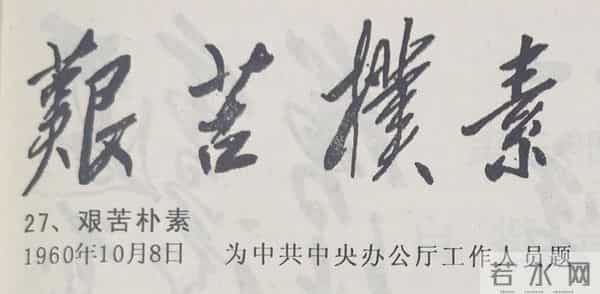 艱苦樸素
27、艰苦朴素
1960年10月8日 为中共中央办公厅工作人员题
若水网